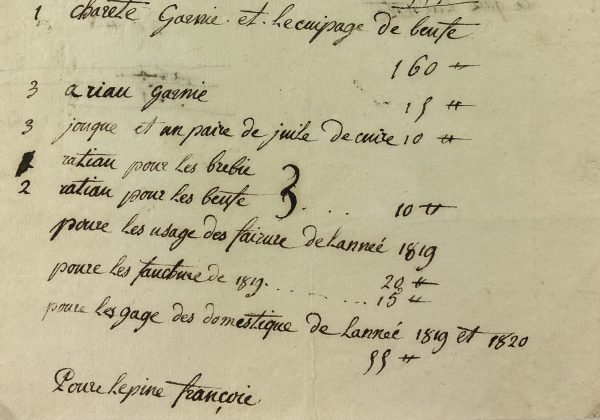 1 charete Garnie et lecuipage de beute
160 "
3 ariau garnie
15 "
3 jouque et un paire de juile de cuire 10 "
1 ratiau pour les brebie
2 ratiau pour les beute } . . . . 10 "
poure les usage des fairure de lanneé 1819
20 "
poure les fauchure de 1819 . . . . . . . . . 15 "
poure les gage des domestique de lanneé 1819 et 1820
55 "
Poure lepine françoie